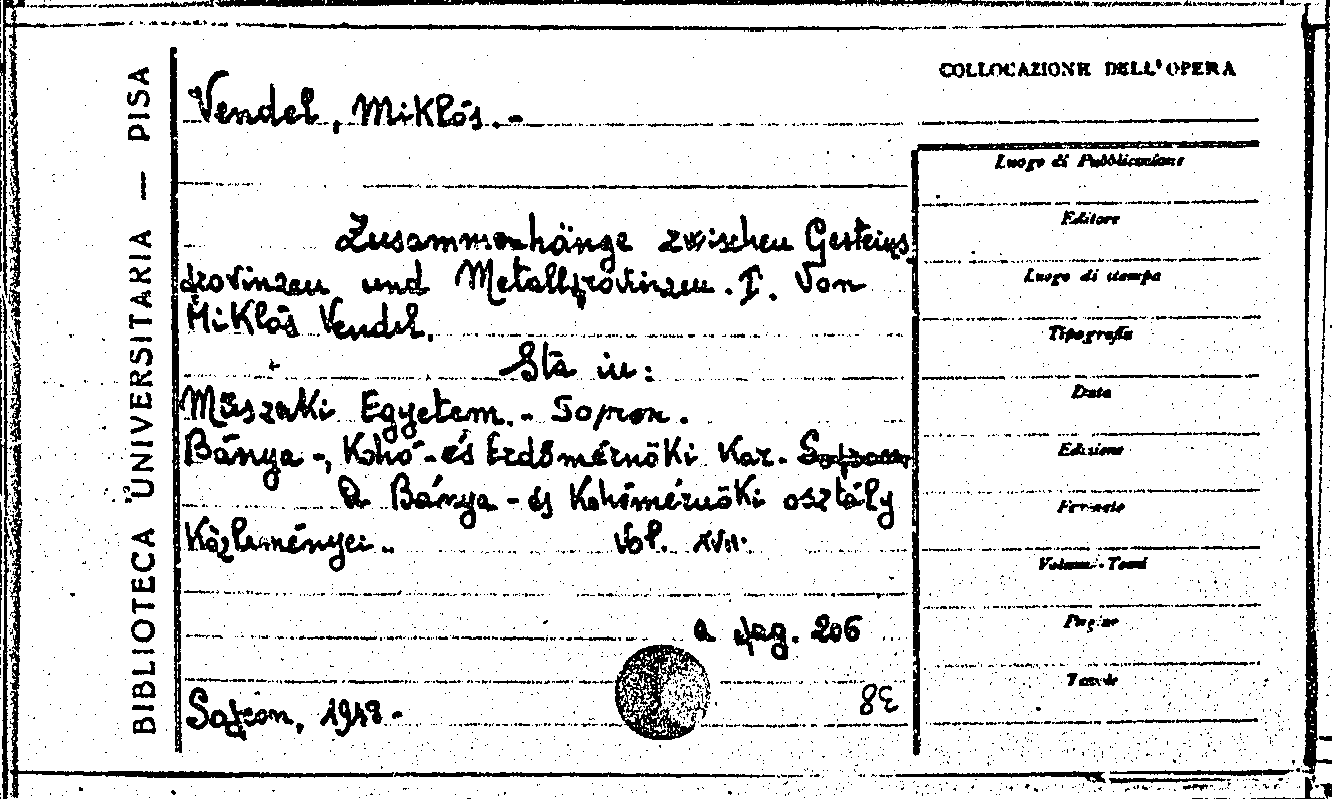 BIBLIOTECA UNIVERSITARIA — PISA
Vendel, Miklós.-
Zusammenhänge zwischen Gesteins
provinzen und Metallprovinzen. I. Von
Miklós Vendel.
Sta in:
Műszaki Egyetem.- Sopron.
Bánya-, Kohó- és Erdőmérnöki Kar. Sopron
A Bánya- és Kohómérnöki osztály
Közleményei.. Vol. XVII.
a pag. 206
Sopron, 1948.-
38
COLLOCAZIONE DELL'OPERA
Luogo di Pubblicazione
Editore
Luogo di stampa
Tipografia
Data
Edizione
Formato
Volumi-Tomi
Pagine
Tavole